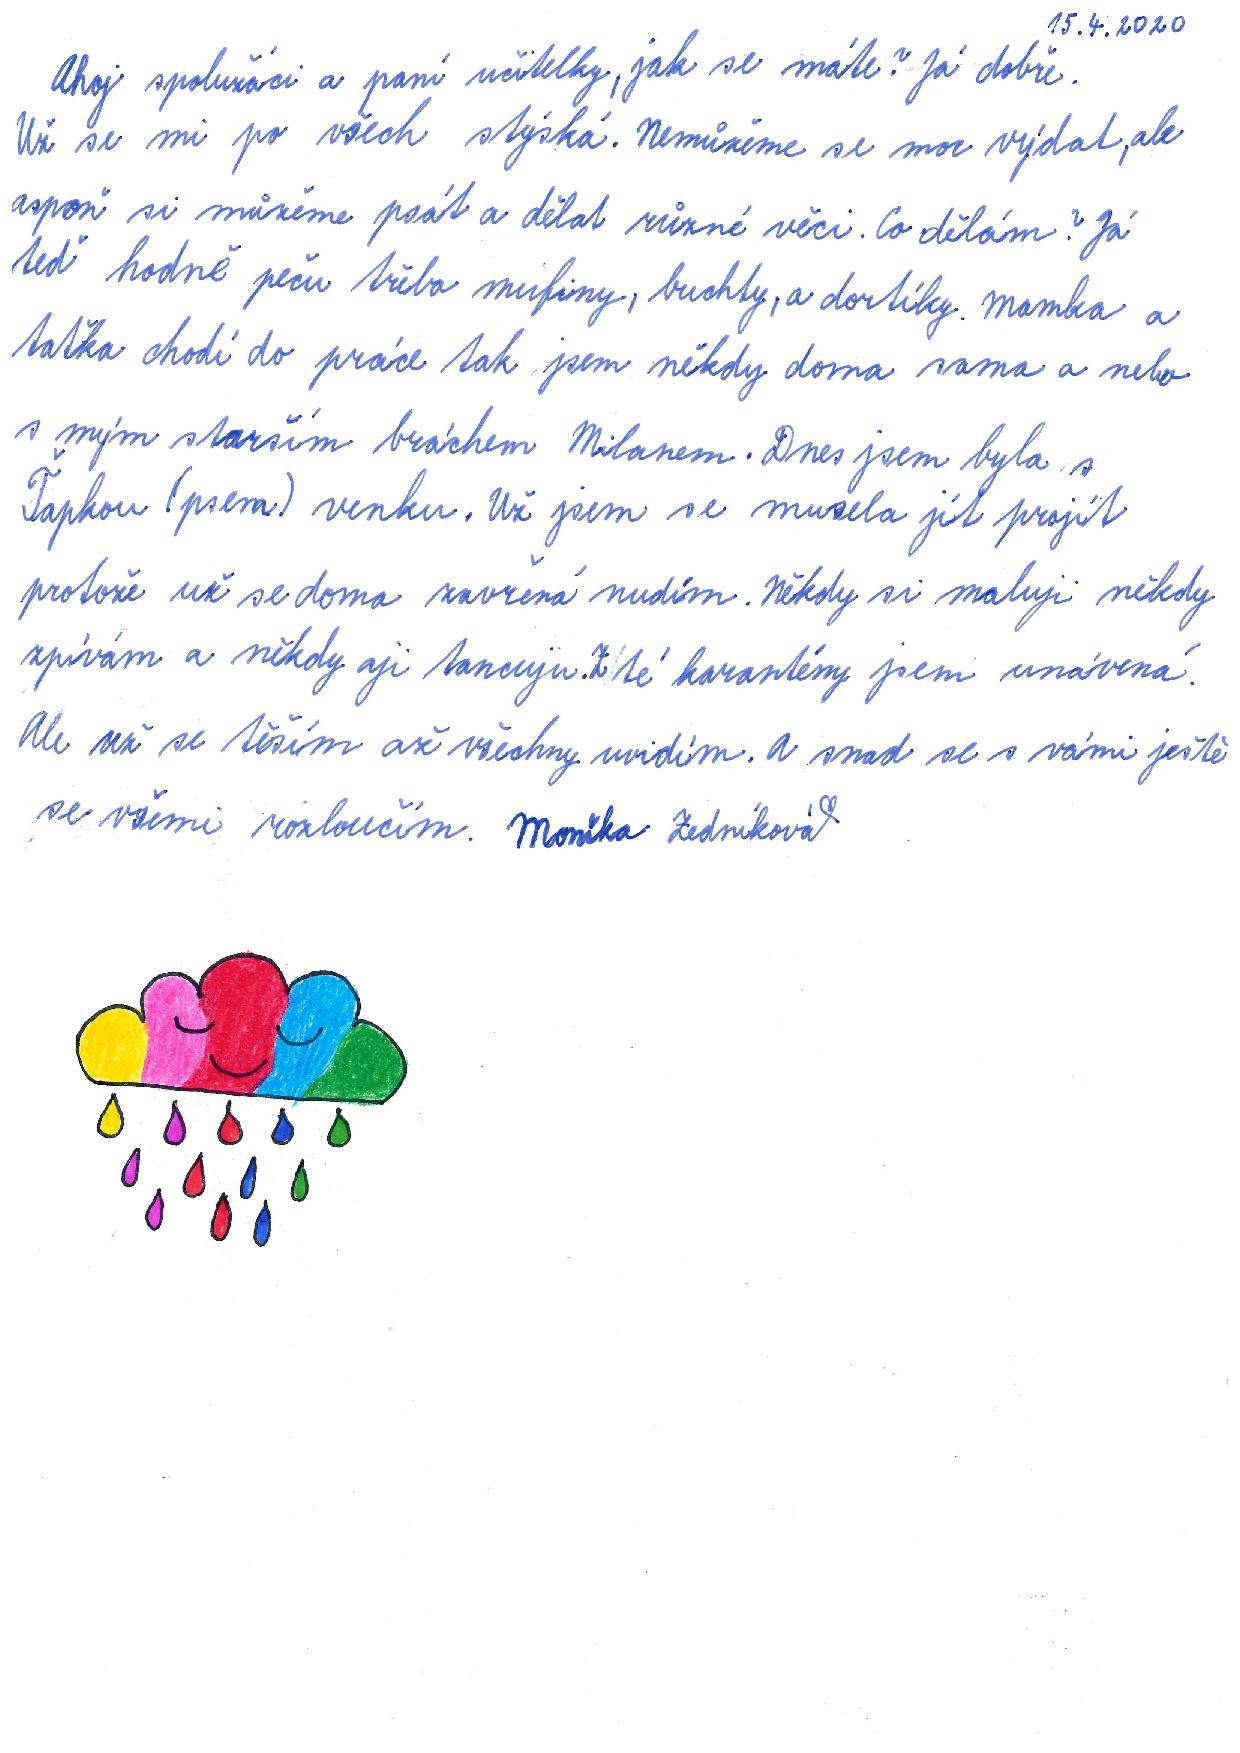 15.4.2020
Ahoj spolužáci a paní učitelky, jak se máte? Já dobře.
Už se mi po všech stýská. Nemůžeme se moc výdat, ale
aspoň si můžeme psát a dělat různé věci. Co dělám? Já
teď hodně peču třeba mufiny, buchty, a dortíky. Mamka a
taťka chodí do práce tak jsem někdy doma sama a nebo
s mým starším bráchem Milanem. Dnes jsem byla s
Ťapkou (psem) venku. Už jsem se musela jít projít
protože už se doma zavřená nudím. Někdy si maluji někdy
zpívám a někdy aji tancuju. Z té karantény jsem unavená.
Ale už se těším až všechny uvidím. A snad se s vámi ještě
se všemi rozloučím. Monika Zedníková